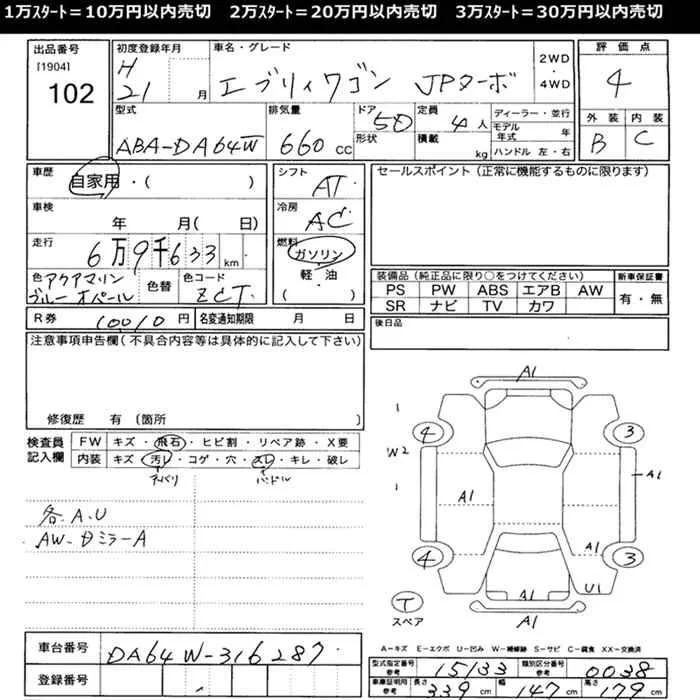 1万ｽﾀｰﾄ＝10万円以内売切　2万ｽﾀｰﾄ＝20万円以内売切　3万ｽﾀｰﾄ＝30万円以内売切
出品番号
[1904]
102
初度登録年月
H
21 月
車名・グレード
エブリィワゴン JPターボ
2WD
・
4WD
評価点
4
型式
ABA-DA64W
排気量
660 CC
ドア
5D
形状
定員
4人
積載
kg
ディーラー・並行
モデル
年式 年
ハンドル 左・右
外装 内装
B C
車歴
自家用・( )
シフト
AT
セールスポイント（正常に機能するものに限ります）
車検
年 月( 日)
冷房
AC
走行
6万9千633 km
燃料
ガソリン
軽・油
( )
色 アクアマリン
ブルーオパール
色替
色コード
ZCT
装備品（純正品に限り○をつけてください）
PS PW ABS エアB AW
SR ナビ TV カワ
新車保証書
有・無
R券 10010 円
名変通知期限 月 日
後日品
注意事項申告欄（不具合内容等は具体的に記入して下さい）
修復歴 有（箇所 ）
検査員
記入欄
FW キズ・飛石・ヒビ割・リペア跡・X要
内装 キズ・汚レ・コゲ・穴・スレ・キレ・破レ
ネバリ ハンドル
各A.U
AW-Dミラー A
A1
1
4 3
W2
A1
1
A1
A1
4 3
U1
T
スペア
A1
A1
A－キズ　E－エクボ　U－凹み　W－補修跡　S－サビ　C－腐食　XX－交換済
車台番号 DA64W-316287
登録番号
型式指定番号
参考 15133
類別区分番号
参考 0038
車庫証明用
参考 長さ 339 cm 幅 147 cm 高さ 179 cm